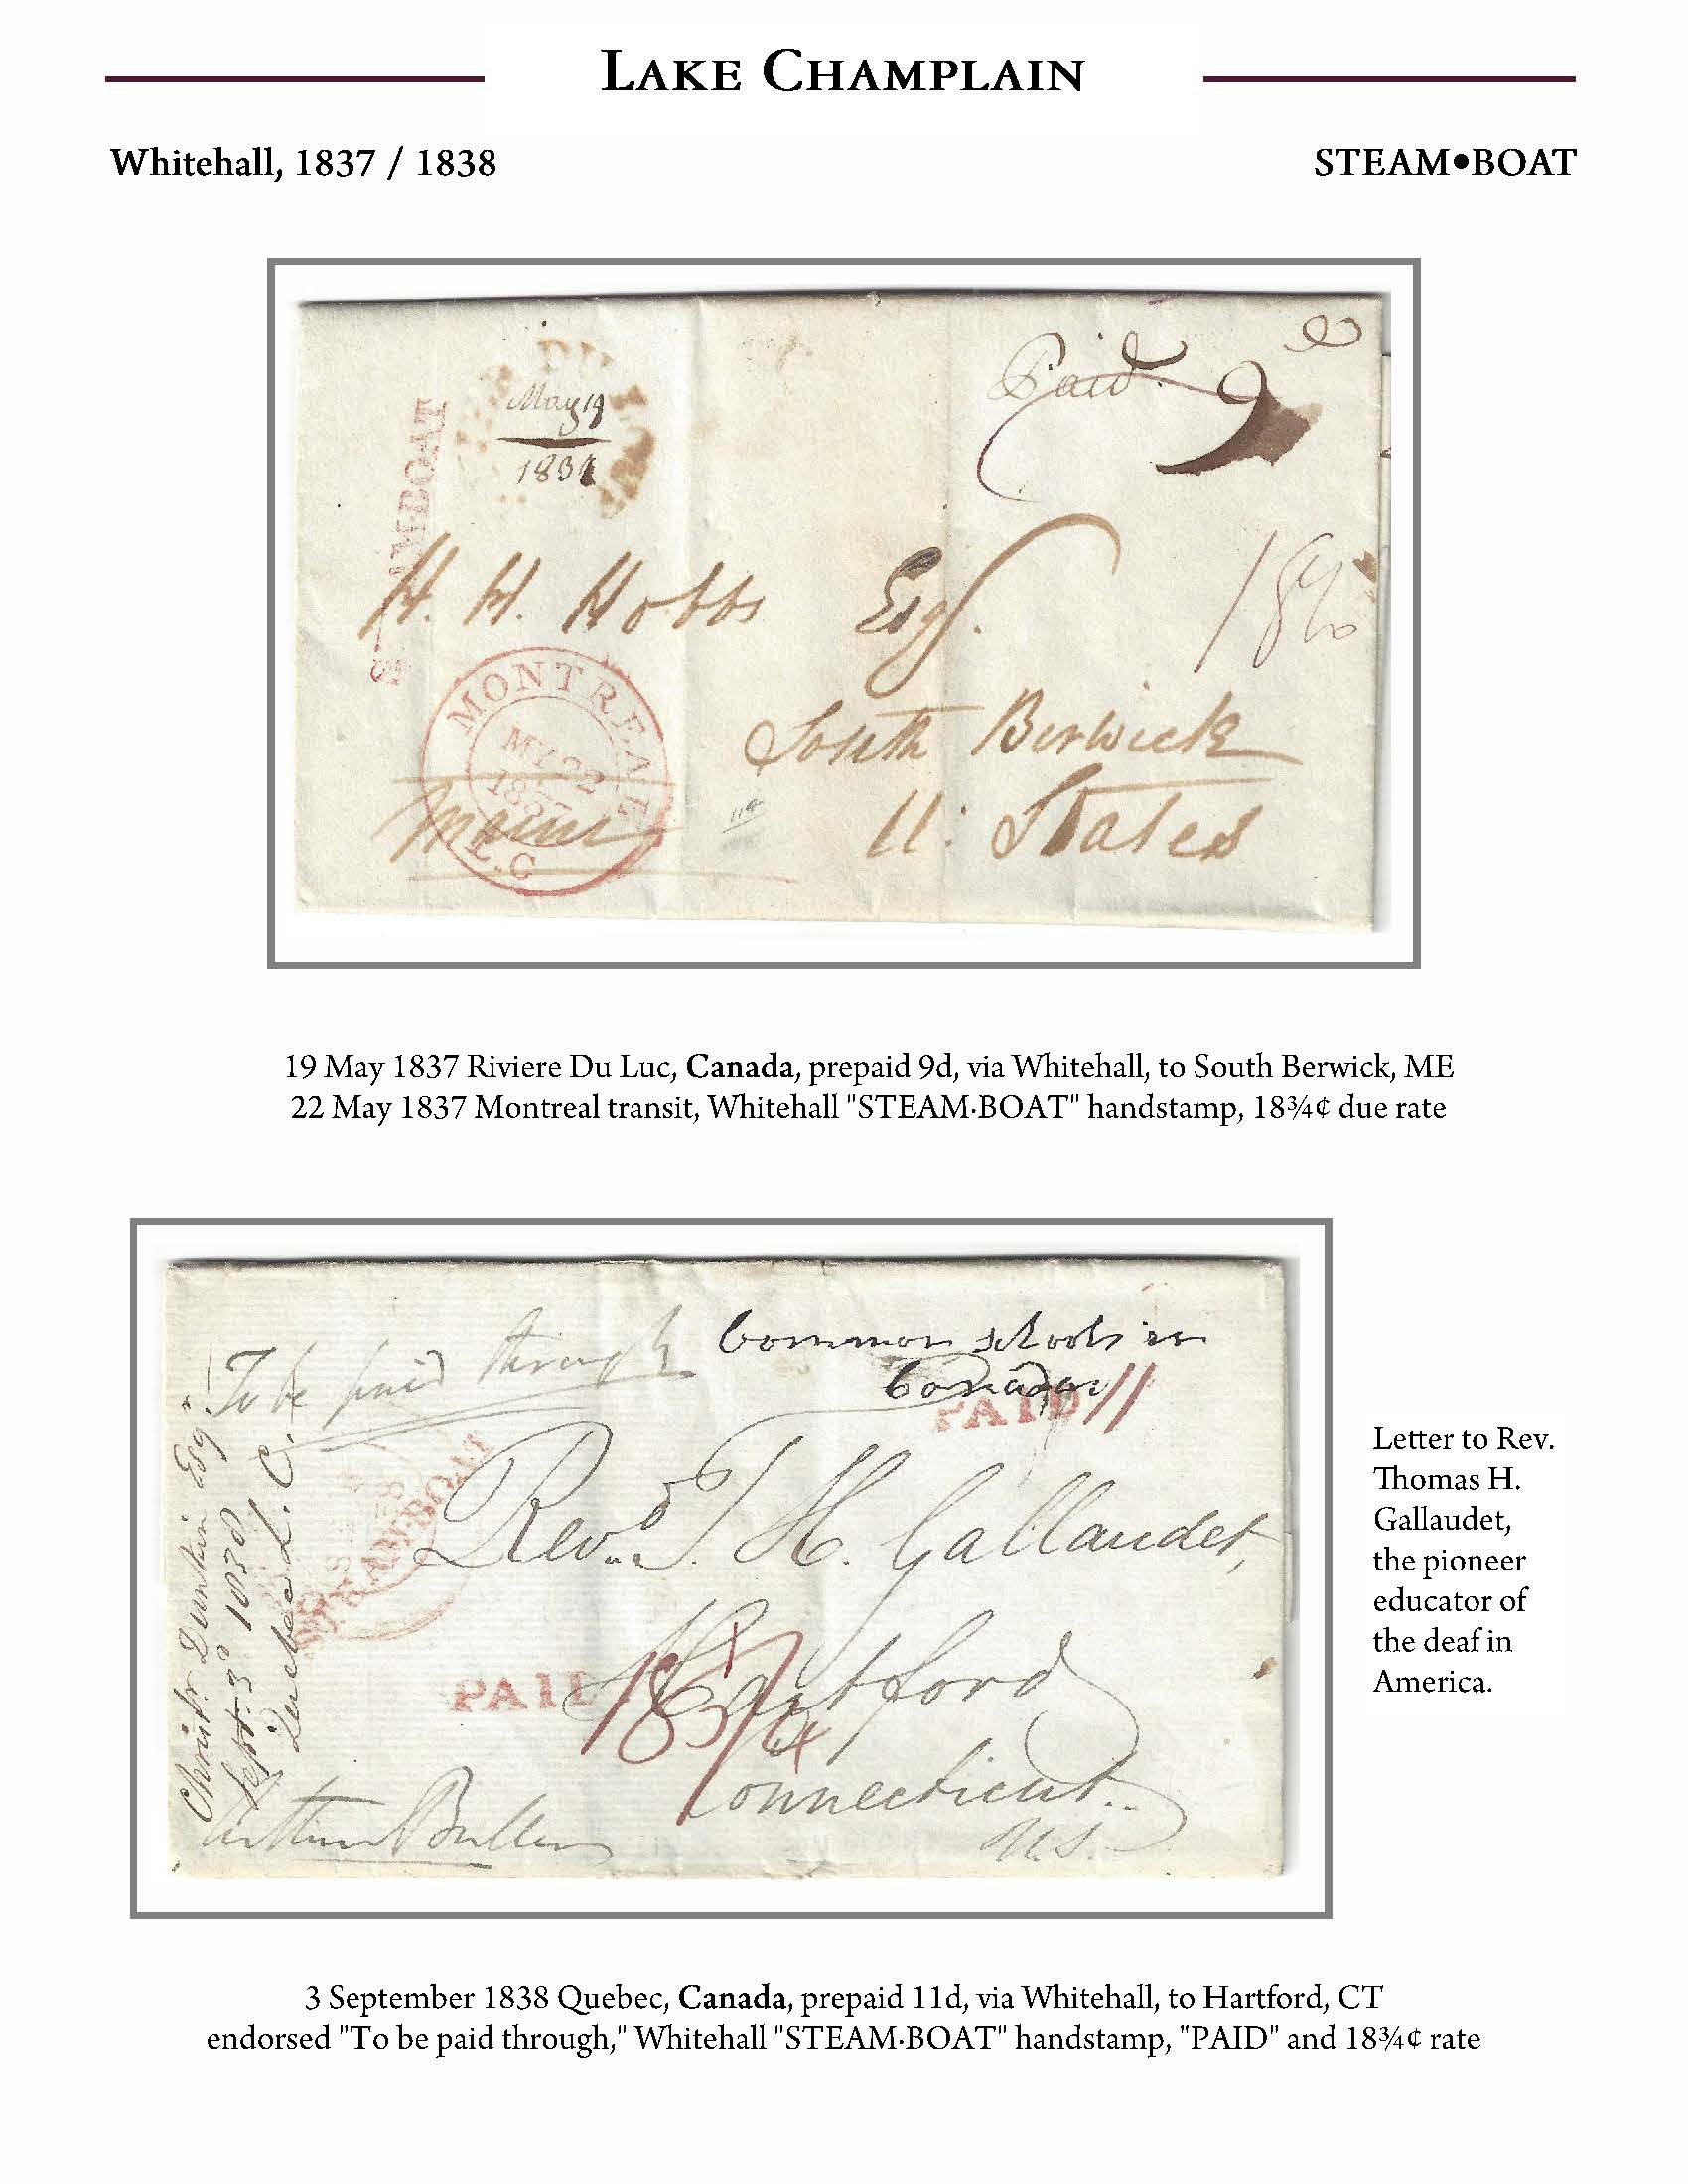 LAKE CHAMPLAIN
Whitehall, 1837 / 1838
STEAM•BOAT
May 19
1837
Paid 9
STEAM·BOAT
H. H. Hobbs Esqr.
18¾
MONTREAL
MY 22
1837
L.C
South Berwick
Maine
U. States
19 May 1837 Riviere Du Luc, Canada, prepaid 9d, via Whitehall, to South Berwick, ME
22 May 1837 Montreal transit, Whitehall "STEAM·BOAT" handstamp, 18¾¢ due rate
To be paid through
Common schools in
Canada
PAID 11
Christr. Dunkin Esqr.
Sept. 3d 1838
Quebec L. C.
STEAM·BOAT
Revd. T. H. Gallaudet,
Hartford
PAID 18 3/4
Connecticut.
U.S.
Arthur Buller
Letter to Rev.
Thomas H.
Gallaudet,
the pioneer
educator of
the deaf in
America.
3 September 1838 Quebec, Canada, prepaid 11d, via Whitehall, to Hartford, CT
endorsed "To be paid through," Whitehall "STEAM·BOAT" handstamp, "PAID" and 18¾¢ rate